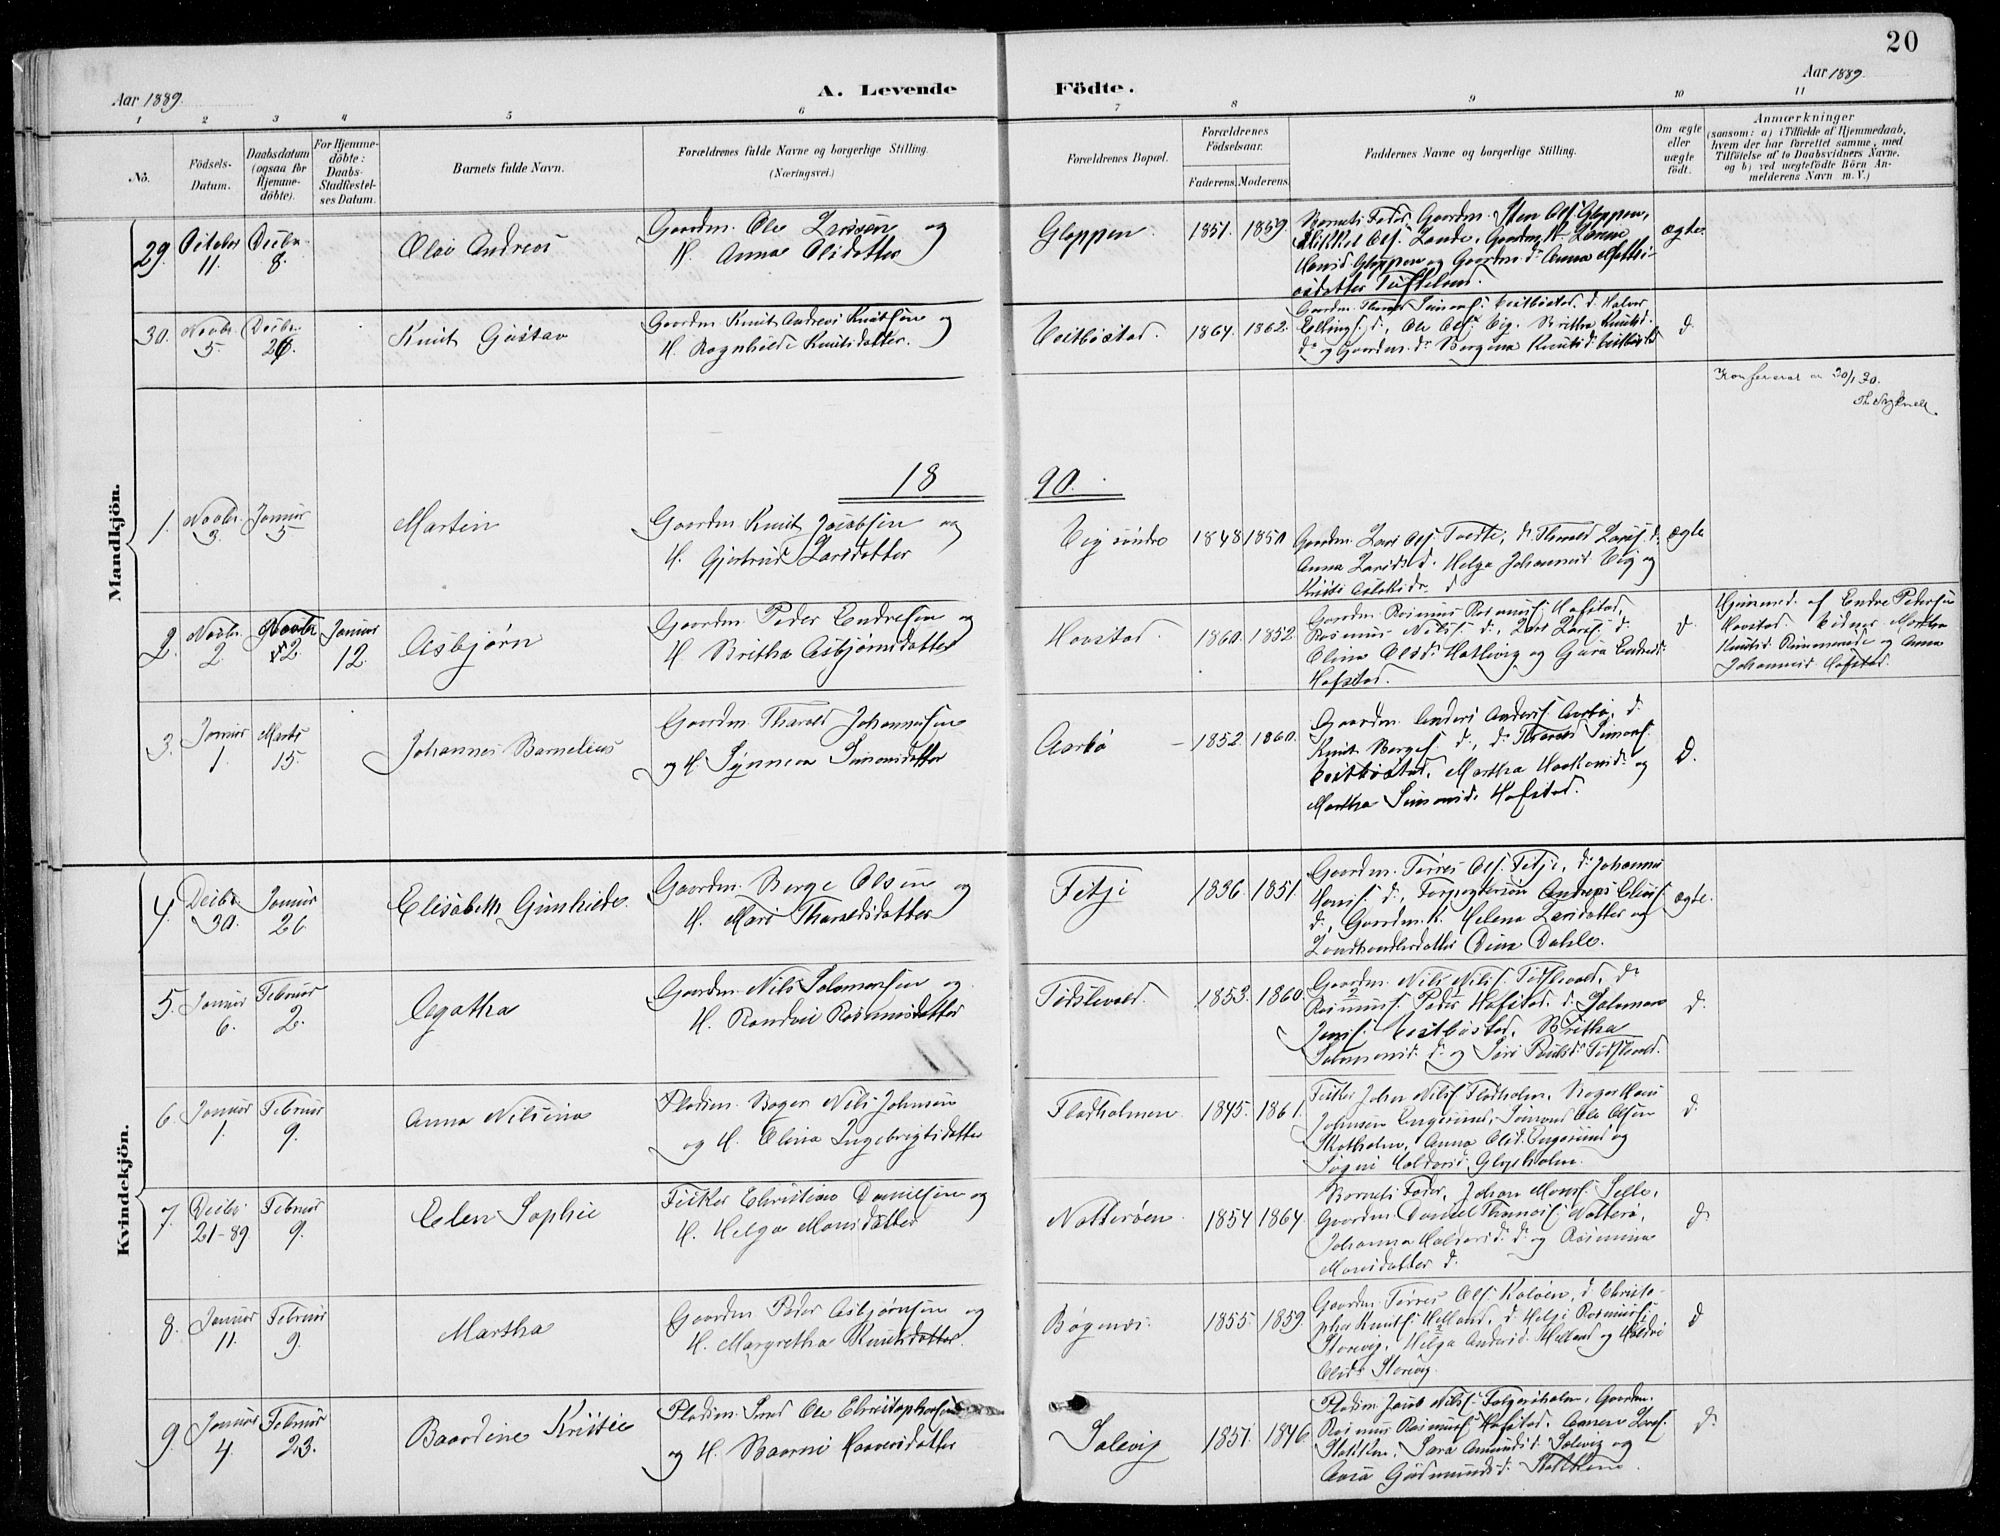 20
Aar 1889.
A. Levende
Födte.
Aar 1889.
1 2 3 4 5 6 7 8 9 10 11
No.
Födsels-Datum.
Daabsdatum (ogsaa for Hjemmedöbte).
For Hjemmedöbte: Daabs-Stadfestelses Datum.
Barnets fulde Navn.
Forældrenes fulde Navne og borgerlige Stilling.
(Næringsvei.)
Forældrenes Bopæl.
Forældrenes Födselsaar.
Faderens. Moderens.
Faddernes Navne og borgerlige Stilling.
Om ægte eller uægte födt.
Anmærkninger
(saasom: a) i Tilfælde af Hjemmedaab, hvem der har forrettet samme, med Tilföielse af to Daabsvidners Navne, og b) ved uægtefödte Börn Anmelderens Navn m. V.)
Mandkjön.
29. October 11. Decbr. 8.
Olav Andreas
Gaardm. Ole Larssen og
H. Anna Olsdatter
Gloppen. 1851. 1859.
Barnets Fader, Gaardm. Sten Ols. Gloppen,
Mikkel Ols. Lande, Gaardm. K.
Monsd. Gloppen og Gaardm. d. Anna
ægte
30. Novbr. 5. Decbr. 26.
Knut Gustav
Gaardm. Knut Andreas Knutsen og
H. Ragnhilde Knutsdatter.
Vestbøstad. 1864. 1862.
Gaardm. Thomas Simons. Vestbøstad, d. Halvor
Ellings. d., Ole Ols. Vig. Britha Knutsd.
d. og Gaardm. d. Bergina Knutsd. Vestbøstad
d.
Konfereret 20/1 30.
18 90.
1. Novbr. 3. Januar 5.
Martin
Gaardm. Knut Jacobsen og
H. Gjertrud Larsdatter
Vig søndre 1848 1850
Gaardm. Lars Ols. Tvedte, d. Thorald Lars. d.
Anna Larsd. d. Helga Johannesd. Vig og
d.
ægte
2. Novbr. 2. Novbr. 2. Januar 12.
Asbjørn
Gaardm. Peder Endresen og
H. Britha Asbjørnsdatter
Hovstad. 1860. 1852.
Gaardm. Rasmus Rasmus. Hofstad,
Rasmus Nils. d., Lars Lars. d.
Olina Olsd. Hatlevig og Gura Endresd.
Hofstad.
d.
Hjemmed. af Endre Pedersen
Hovstad. Vidner Martha
Knutsd. og Anna
Johannesd. Hofstad.
3. Januar 1. Marts 15.
Johannes Barnelius
Gaardm. Tharald Johannessen
og H. Synneva Simonsdatter
Aarbø 1852. 1860.
Gaardm. Anders Anders. Aarbø, d.
Knut Berges. d., d. Tharald Simons.
Vestbøstad, Martha Haakonsd. og
Martha Simonsd. Hofstad.
d.
Kvindekjön.
4. Decbr. 30. Januar 26.
Elisabeth Gunhilde.
Gaardm. Berge Olsen og
H. Mari Tharaldsdatter
Fitje 1836. 1851.
Gaardm. Tørres Ols. Fitje, d. Johannes
Mons. d., Andreas Elias.
d., Gaardm. K. Helena Larsdatter og
Landhandlerdatter Dina Dahle.
ægte.
5. Januar 6. Februar 2.
Agatha
Gaardm. Nils Salomonsen og
H. Randvei Rasmusdatter
1853. 1860.
Gaardm. Nils Nils. d.
Rasmus. Peder Hofstad, d. Salomon
Jens. Vestbøstad, Britha
Salomonsd. d. og Siri
d.
6. Januar 1. Februar 9.
Anna Nilsina
Pladsm. Bager Nils Johnsen
og H. Olina Ingebrigtsdatter
Fladholmen 1845. 1861.
Fisker Johan Nils. Fladholm, Bager Hans
Johnsen Engesund, Simon Ole Olsen
Anna Olsd. Engesund og
Haldorsd.
d.
7. Decbr. 21-89 Februar 9.
Elen Sophie
Fisker Christian Danielsen og
H. Helga Monsdatter
Natterøen 1854 1864.
Barnets Fader, Johan Mons. Selle,
Gaardm. Daniel Natterø,
Johanna Haldorsd. d. og Rasmine
Monsdatter d.
d
8. Januar 11. Februar 9.
Martha
Gaardm. Peder Asbjørnsen og
H. Margretha Knutsdatter
Bøgenæs. 1855. 1859
Gaardm. Tørres Ols. Kalvøen, d. Christo-
pher Knuts. Helland, d. Helje Rasmus.
Storevig, Helga Andersd. Helland og
Olsd. Storevig.
d
9. Januar 4. Februar 23.
Baardine Kristie
Pladsm. Smed Ole Christophersen
og H. Baarni Haaversdatter
Solevig 1851. 1846
Pladsm. Jacob Nils. Gaardm.
Rasmus Rasmus. Hofstad,
Sara Amundsd. Solevig og
Gudmundsd.
d.